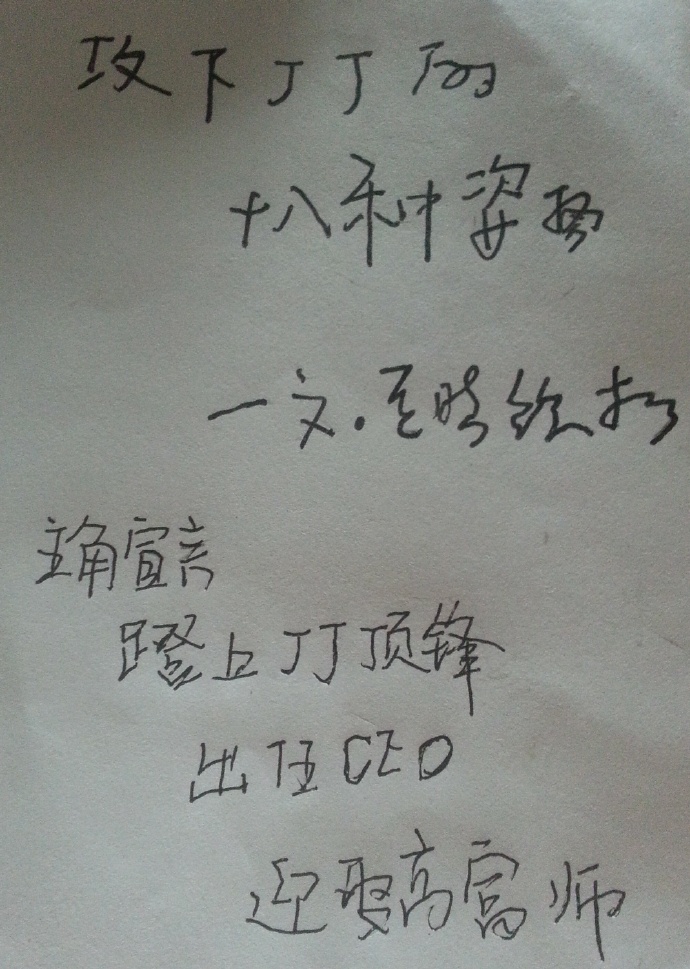 攻下JJ的
十八种姿势
一文.
主角宣言
蹬上JJ顶锋
出任CEO
迎娶高富师